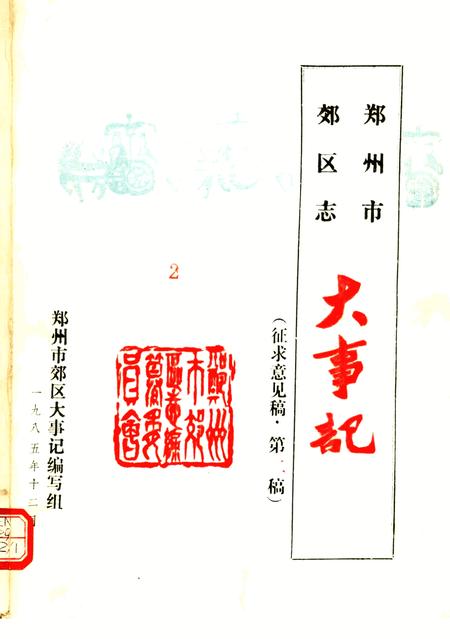 郑州市
郊区志
大事记
(征求意见稿·第二稿)
2
郑州市郊区志编纂委员会
郑州市郊区大事记编写组
一九八五年十二月
2/1